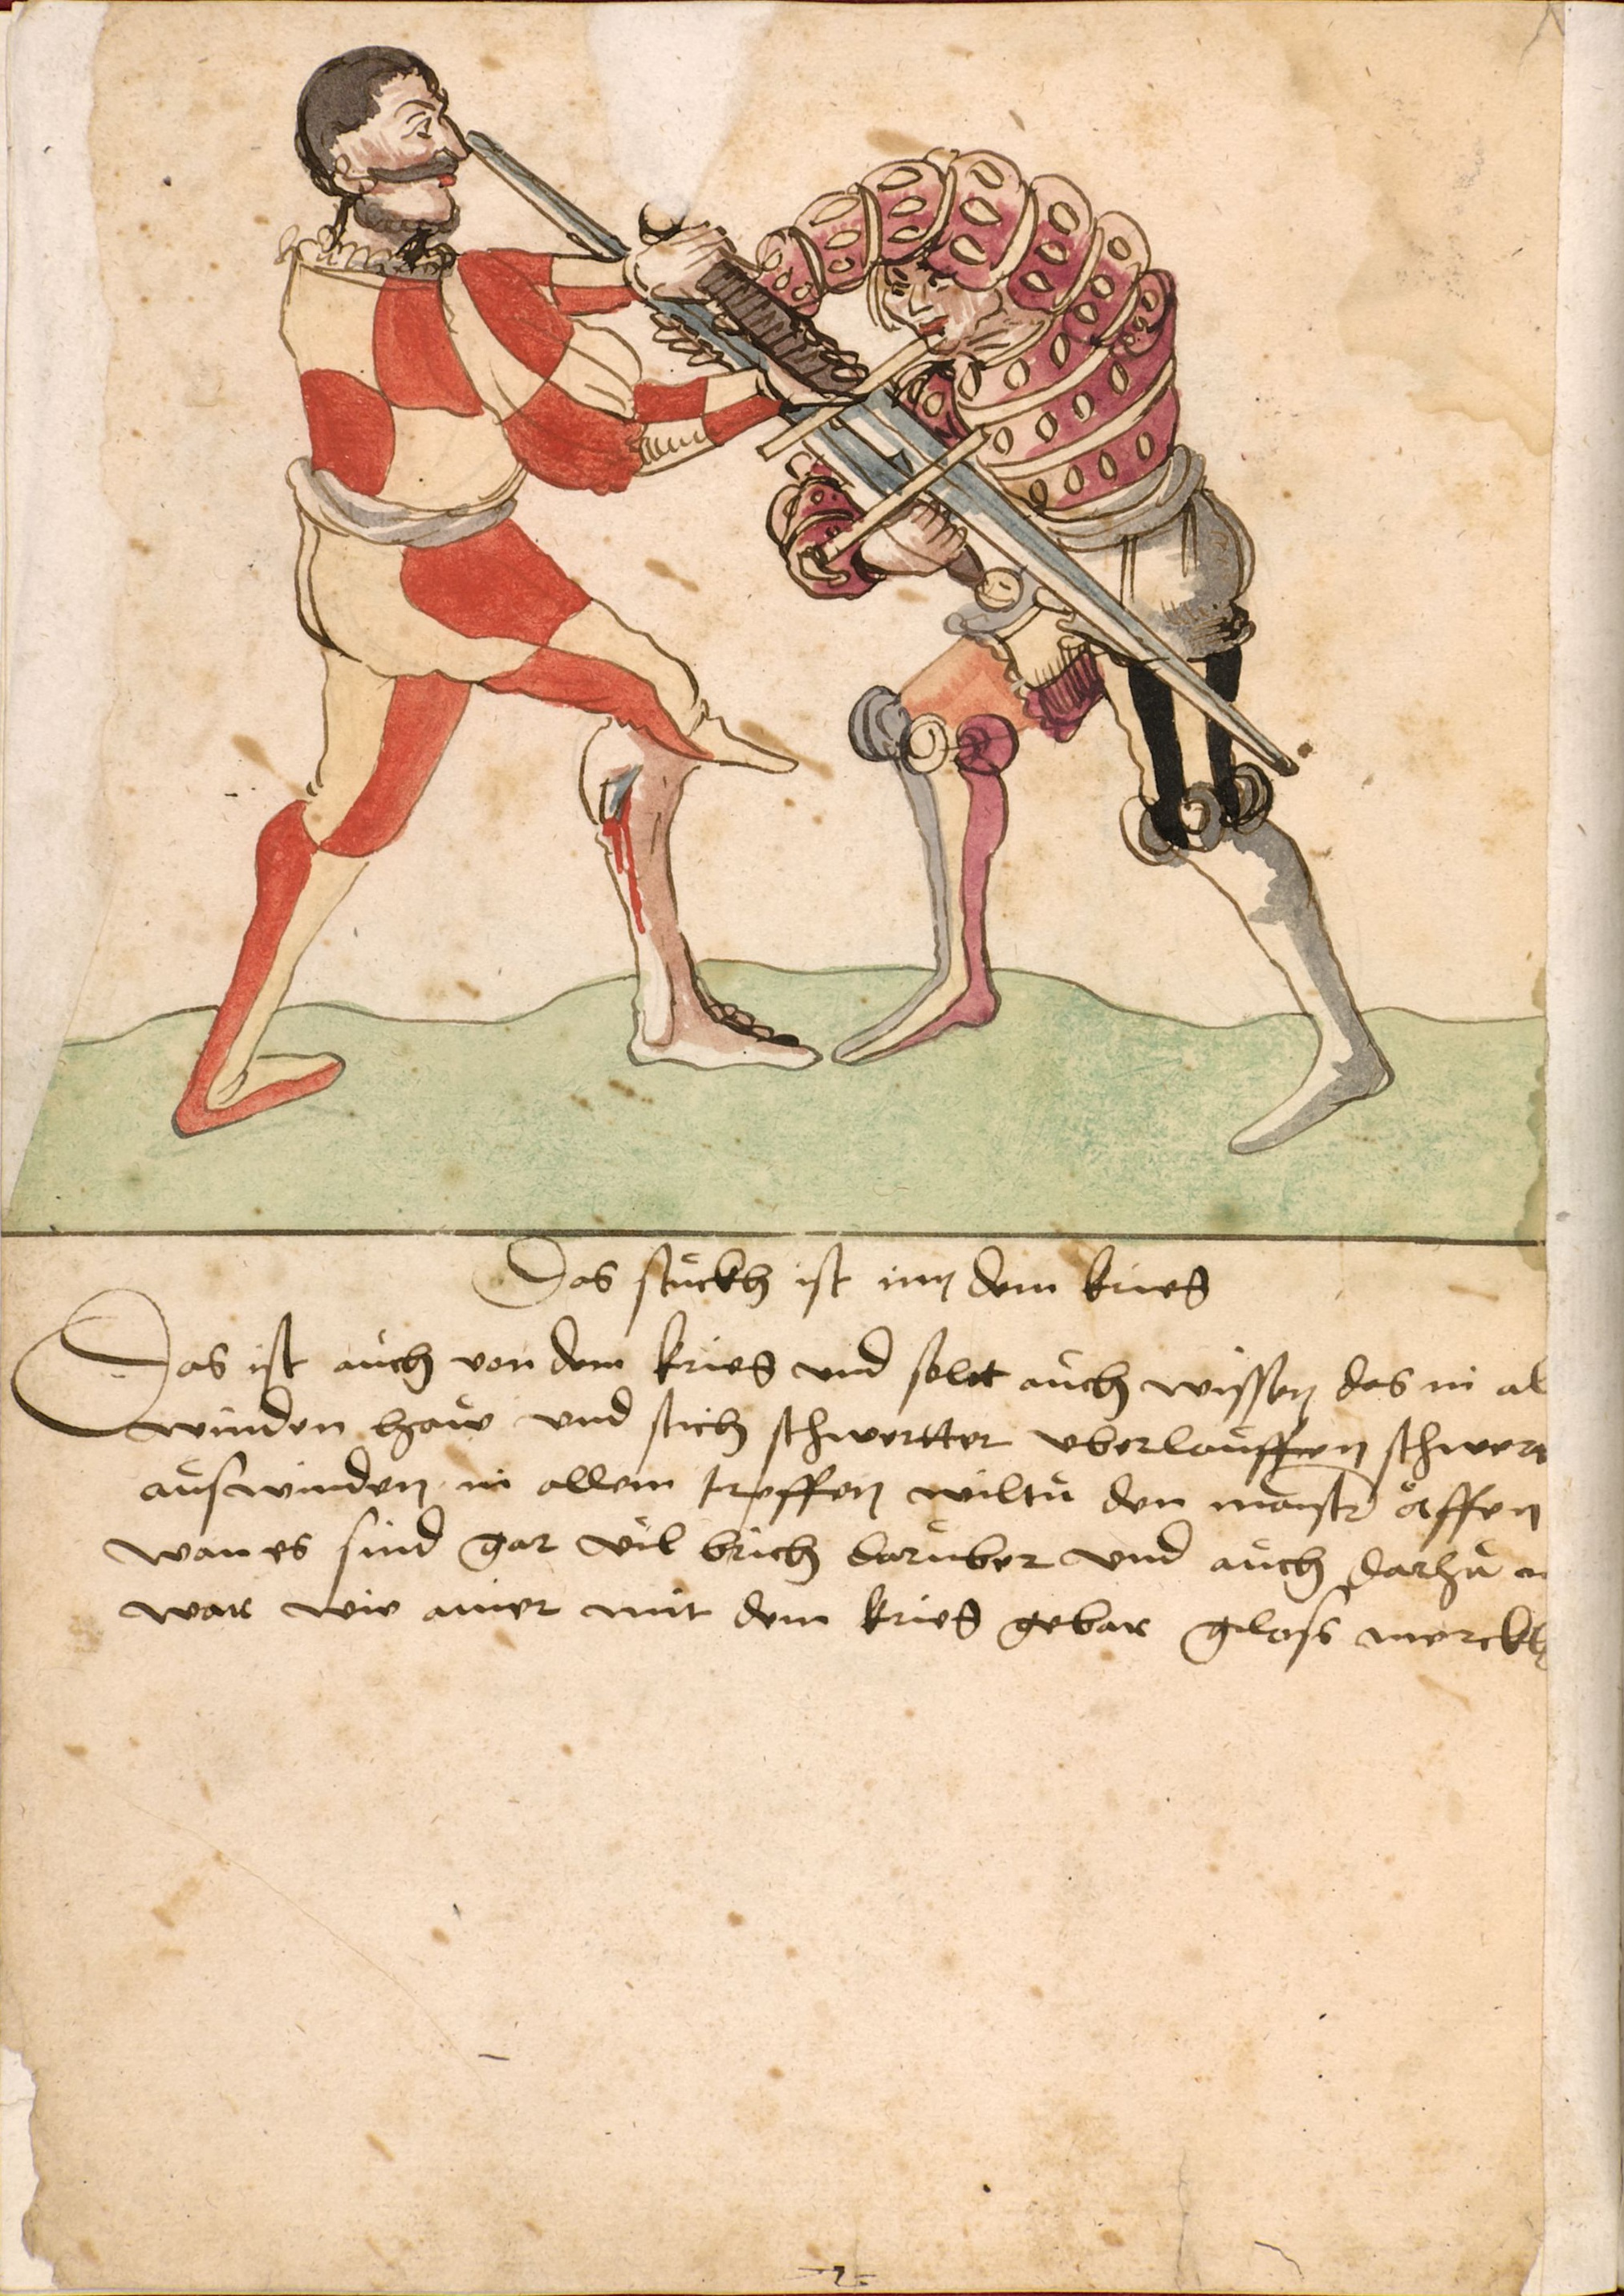 Das stuckh ist inn dem krieg
Das ist auch von dem krieg und solt auch wissen das in al
winden haw und stich schwertter vberlauffen schwert
auswinden in allem treffen wiltu den maystr äffen
wan es sind gar vil brich daruber und auch darzu
war wie ainer mit dem krieg gebar gloss merckh